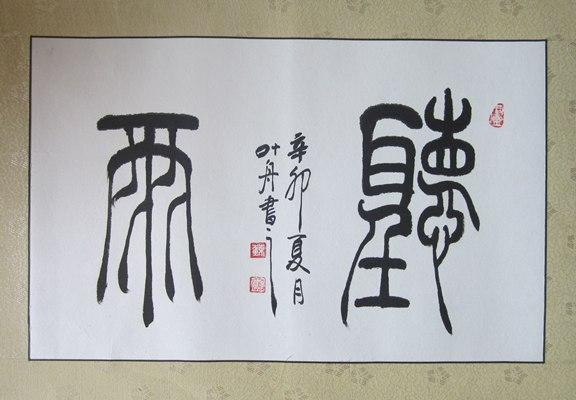 聽雨
辛卯夏月
叶舟書之